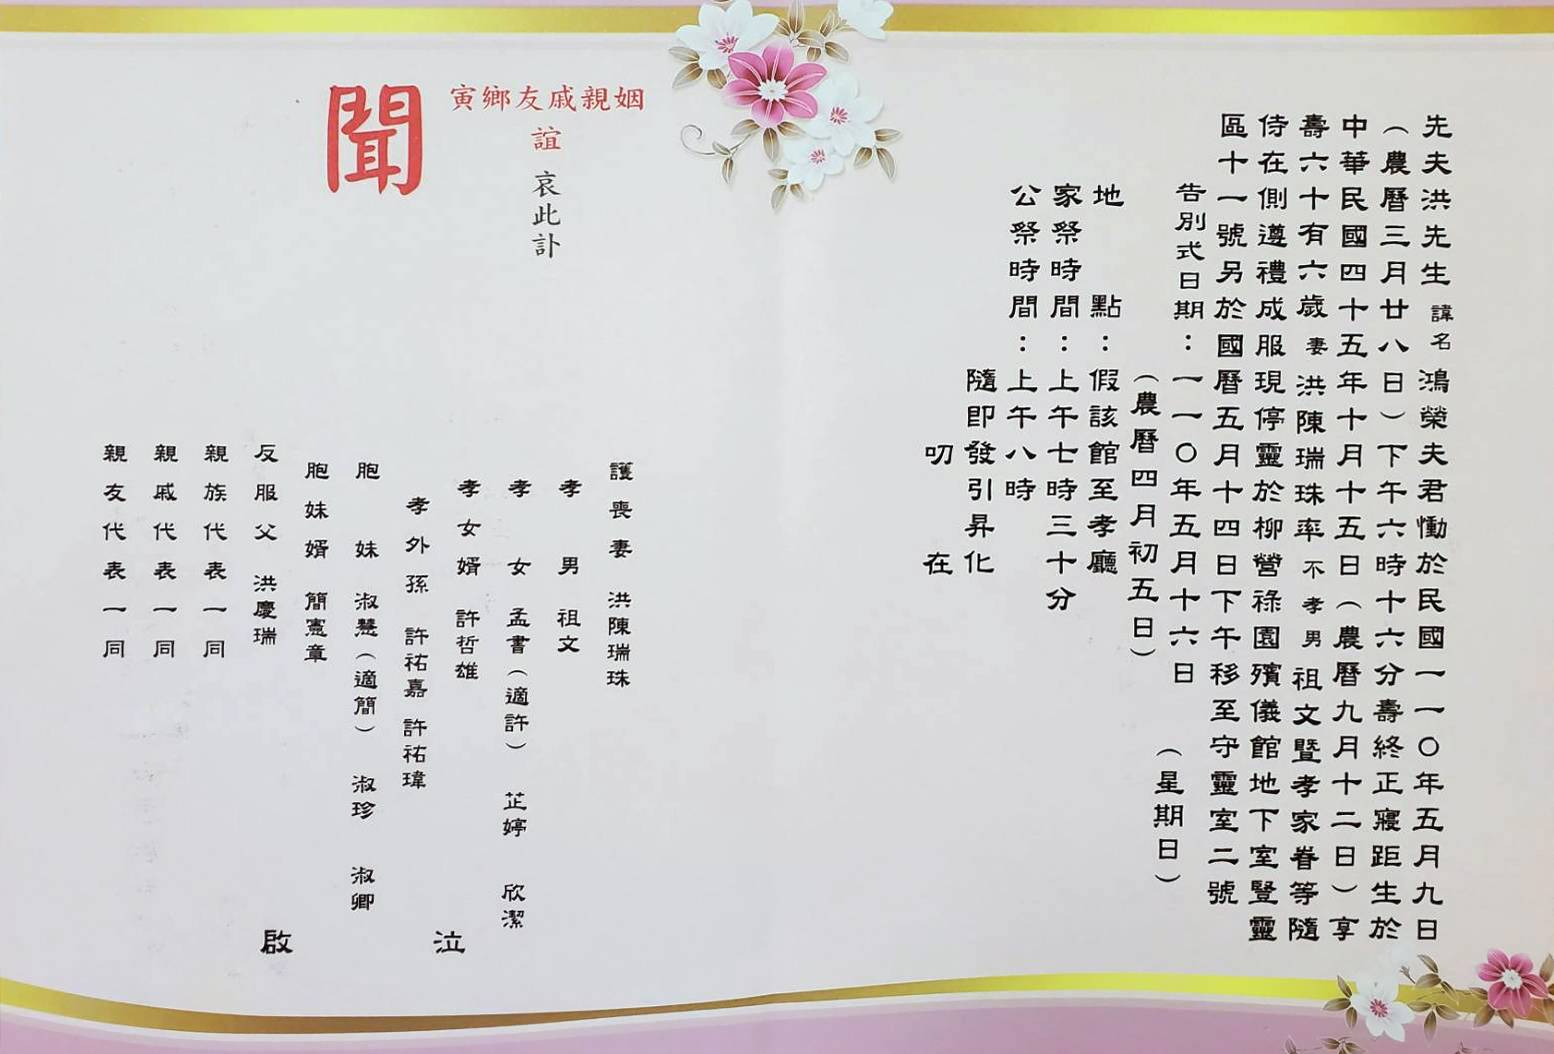 先夫洪先生諱名鴻榮夫君慟於民國一一〇年五月九日
（農曆三月廿八日）下午六時十六分壽終正寢距生於
中華民國四十五年十月十五日（農曆九月十二日）享
壽六十有六歲妻洪陳瑞珠率不孝男祖文暨孝家眷等隨
侍在側遵禮成服現停靈於柳營祿園殯儀館地下室豎靈
區十一號另於國曆五月十四日下午移至守靈室二號
告別式日期：一一〇年五月十六日（星期日）
（農曆四月初五日）
地點：假該館至孝廳
家祭時間：上午七時三十分
公祭時間：上午八時
隨即發引昇化
叨在
姻親戚友鄉寅
誼哀此訃
聞
護喪妻 洪陳瑞珠
孝男 祖文
孝女 孟書（適許） 芷婷 欣潔
孝女婿 許哲雄
孝外孫 許祐嘉 許祐瑋
胞妹 淑慧（適簡） 淑珍 淑卿
胞妹婿 簡憲章
反服父 洪慶瑞
親族代表一同
親戚代表一同
親友代表一同
泣啟